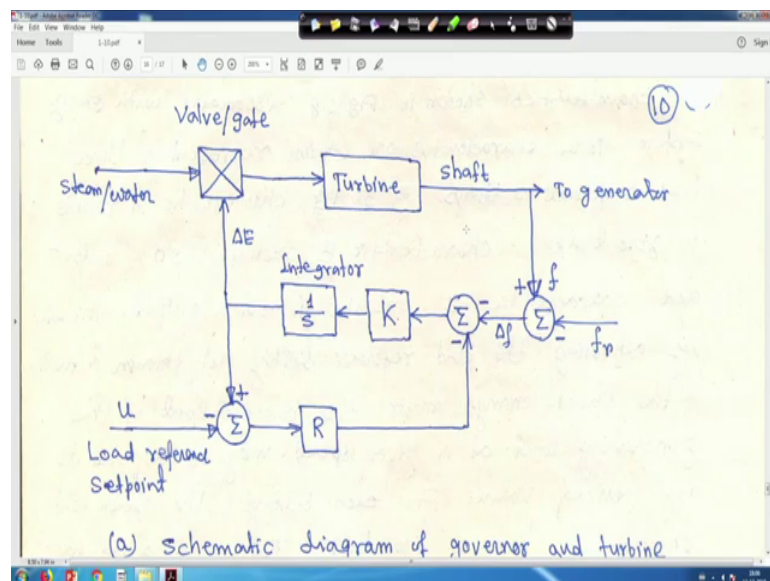 File Edit View Window Help
Home Tools 1-10.pdf × Sign
16 / 17
(10)
Valve/gate
Steam/water
Turbine
shaft
To generator
ΔE
Integrator
1/S
K
Σ
Δf
Σ
f
fr
+
-
-
-
u
-
+
Σ
R
Load reference
Setpoint
(a) schematic diagram of governor and turbine